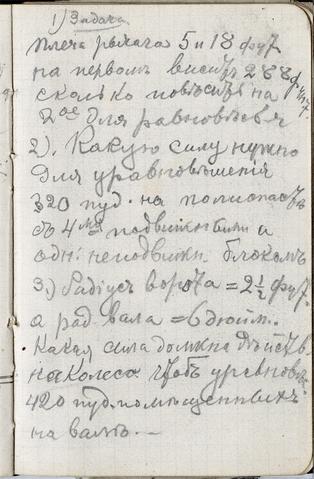 1) Задача
Плеча рычага 5 и 18 фут.
на первомъ виситъ 288 фунт.
сколько повѣсить на
2ое для равновѣсія
2). Какую силу нужно
для уравновѣшенія
320 пуд. на полиспастѣ
съ 4мя подвижными и
одн. неподвижн. блокомъ
3.) Радіусъ ворота = 2 1/2 фут.
а рад. вала = 6 дюйм.
Какая сила должна дѣйств.
на колесо чтобъ уравновѣс.
420 пуд. помѣщенныхъ
на валъ. —